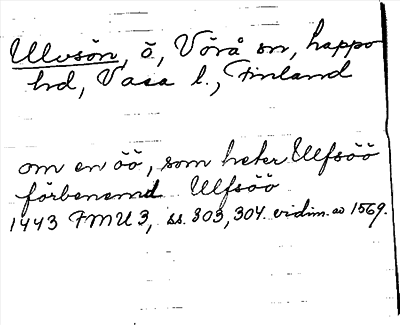 Ulvsön, ö, Vörå sn, happo
hd, Vasa l., Finland
om en öö, som heter Ulfsöö
förbenemd Ulfsöö
1443 FMU 3, ss. 303, 304. vidim. av 1569.